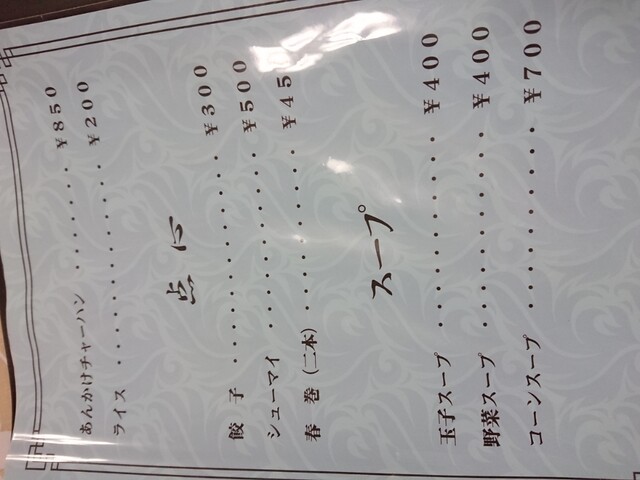 あんかけチャーハン ........ ¥850
ライス ................ ¥200
点心
餃 子 ............ ¥300
シューマイ ............ ¥500
春 巻 (二本) .......... ¥45
スープ
玉子スープ ............ ¥400
野菜スープ ............ ¥400
コーンスープ .......... ¥700